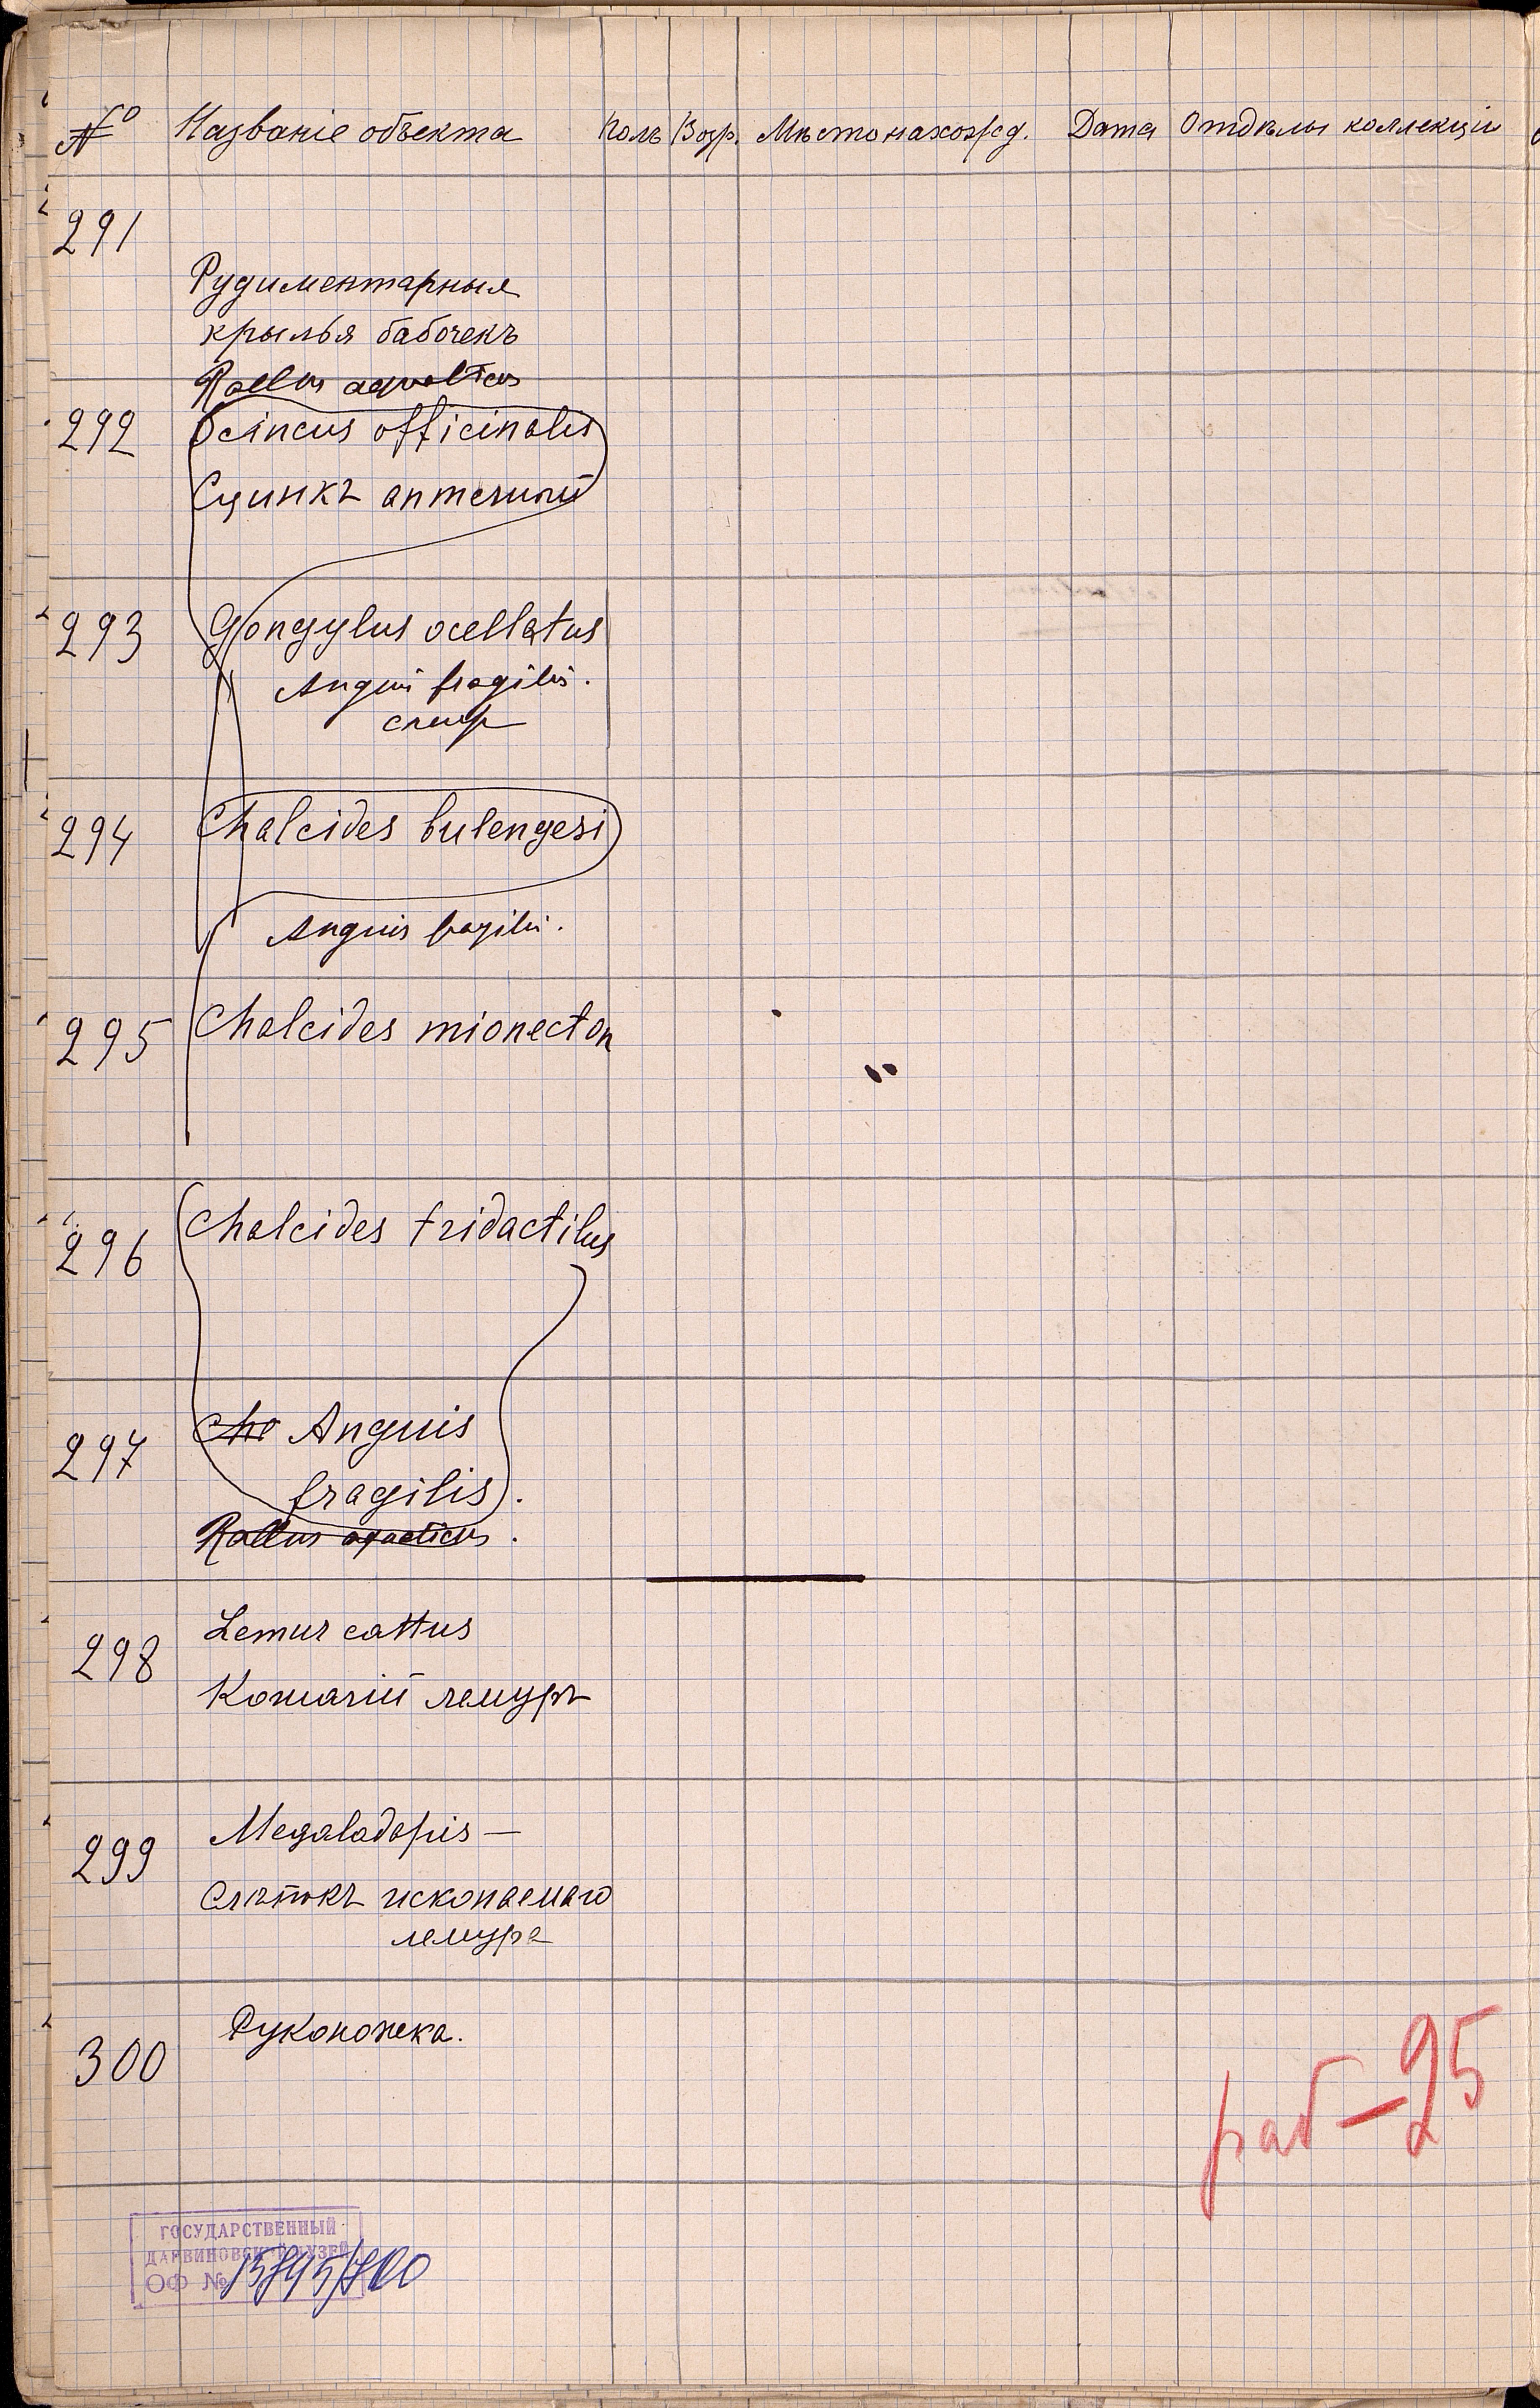 № Названіе объекта Полъ Возр. Мѣстонахожд. Дата Отдѣлы коллекціи
291
Рудиментарныя
крылья бабочекъ
Rallus aquaticus
292 Scincus officinalis
Сцинкъ аптечный
293 Gongylus ocellatus
Anguis fragilis.
294 Chalcides bulengeri
Anguis fragilis.
295 Chalcides mionecton
296 Chalcides tridactilus
297 Cha Anguis
fragilis.
Rallus aquaticus.
298 Lemur cattus
Кошачій лемуръ
299 Megaladapis —
Слѣпокъ ископаемаго
лемура
300 Руконожка.
раб — 25
ГОСУДАРСТВЕННЫЙ
ДАРВИНОВСКИЙ МУЗЕЙ
ОФ №